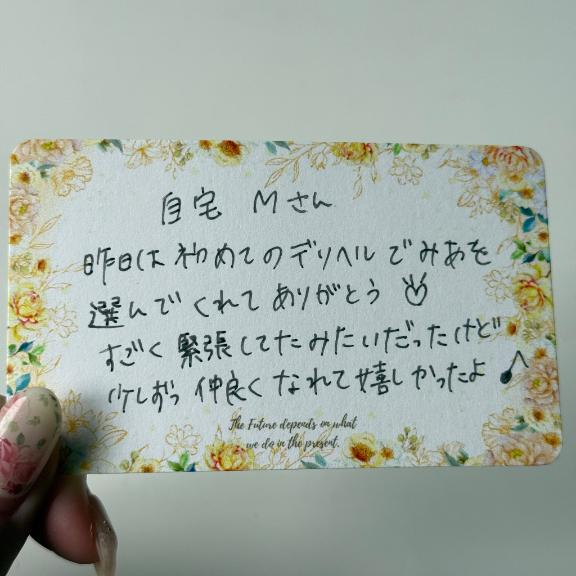 自宅 Mさん
昨日は初めてのデリヘルでみあを
選んでくれてありがとう
すごく緊張してたみたいだったけど
少しずつ仲良くなれて嬉しかったよ♪
The Future depends on what
we do in the present.